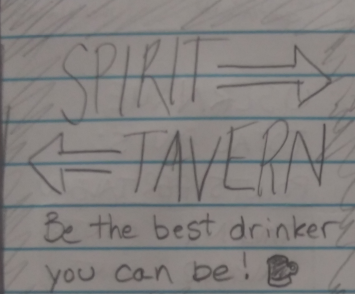 SPIRIT
TAVERN
Be the best drinker
you can be!